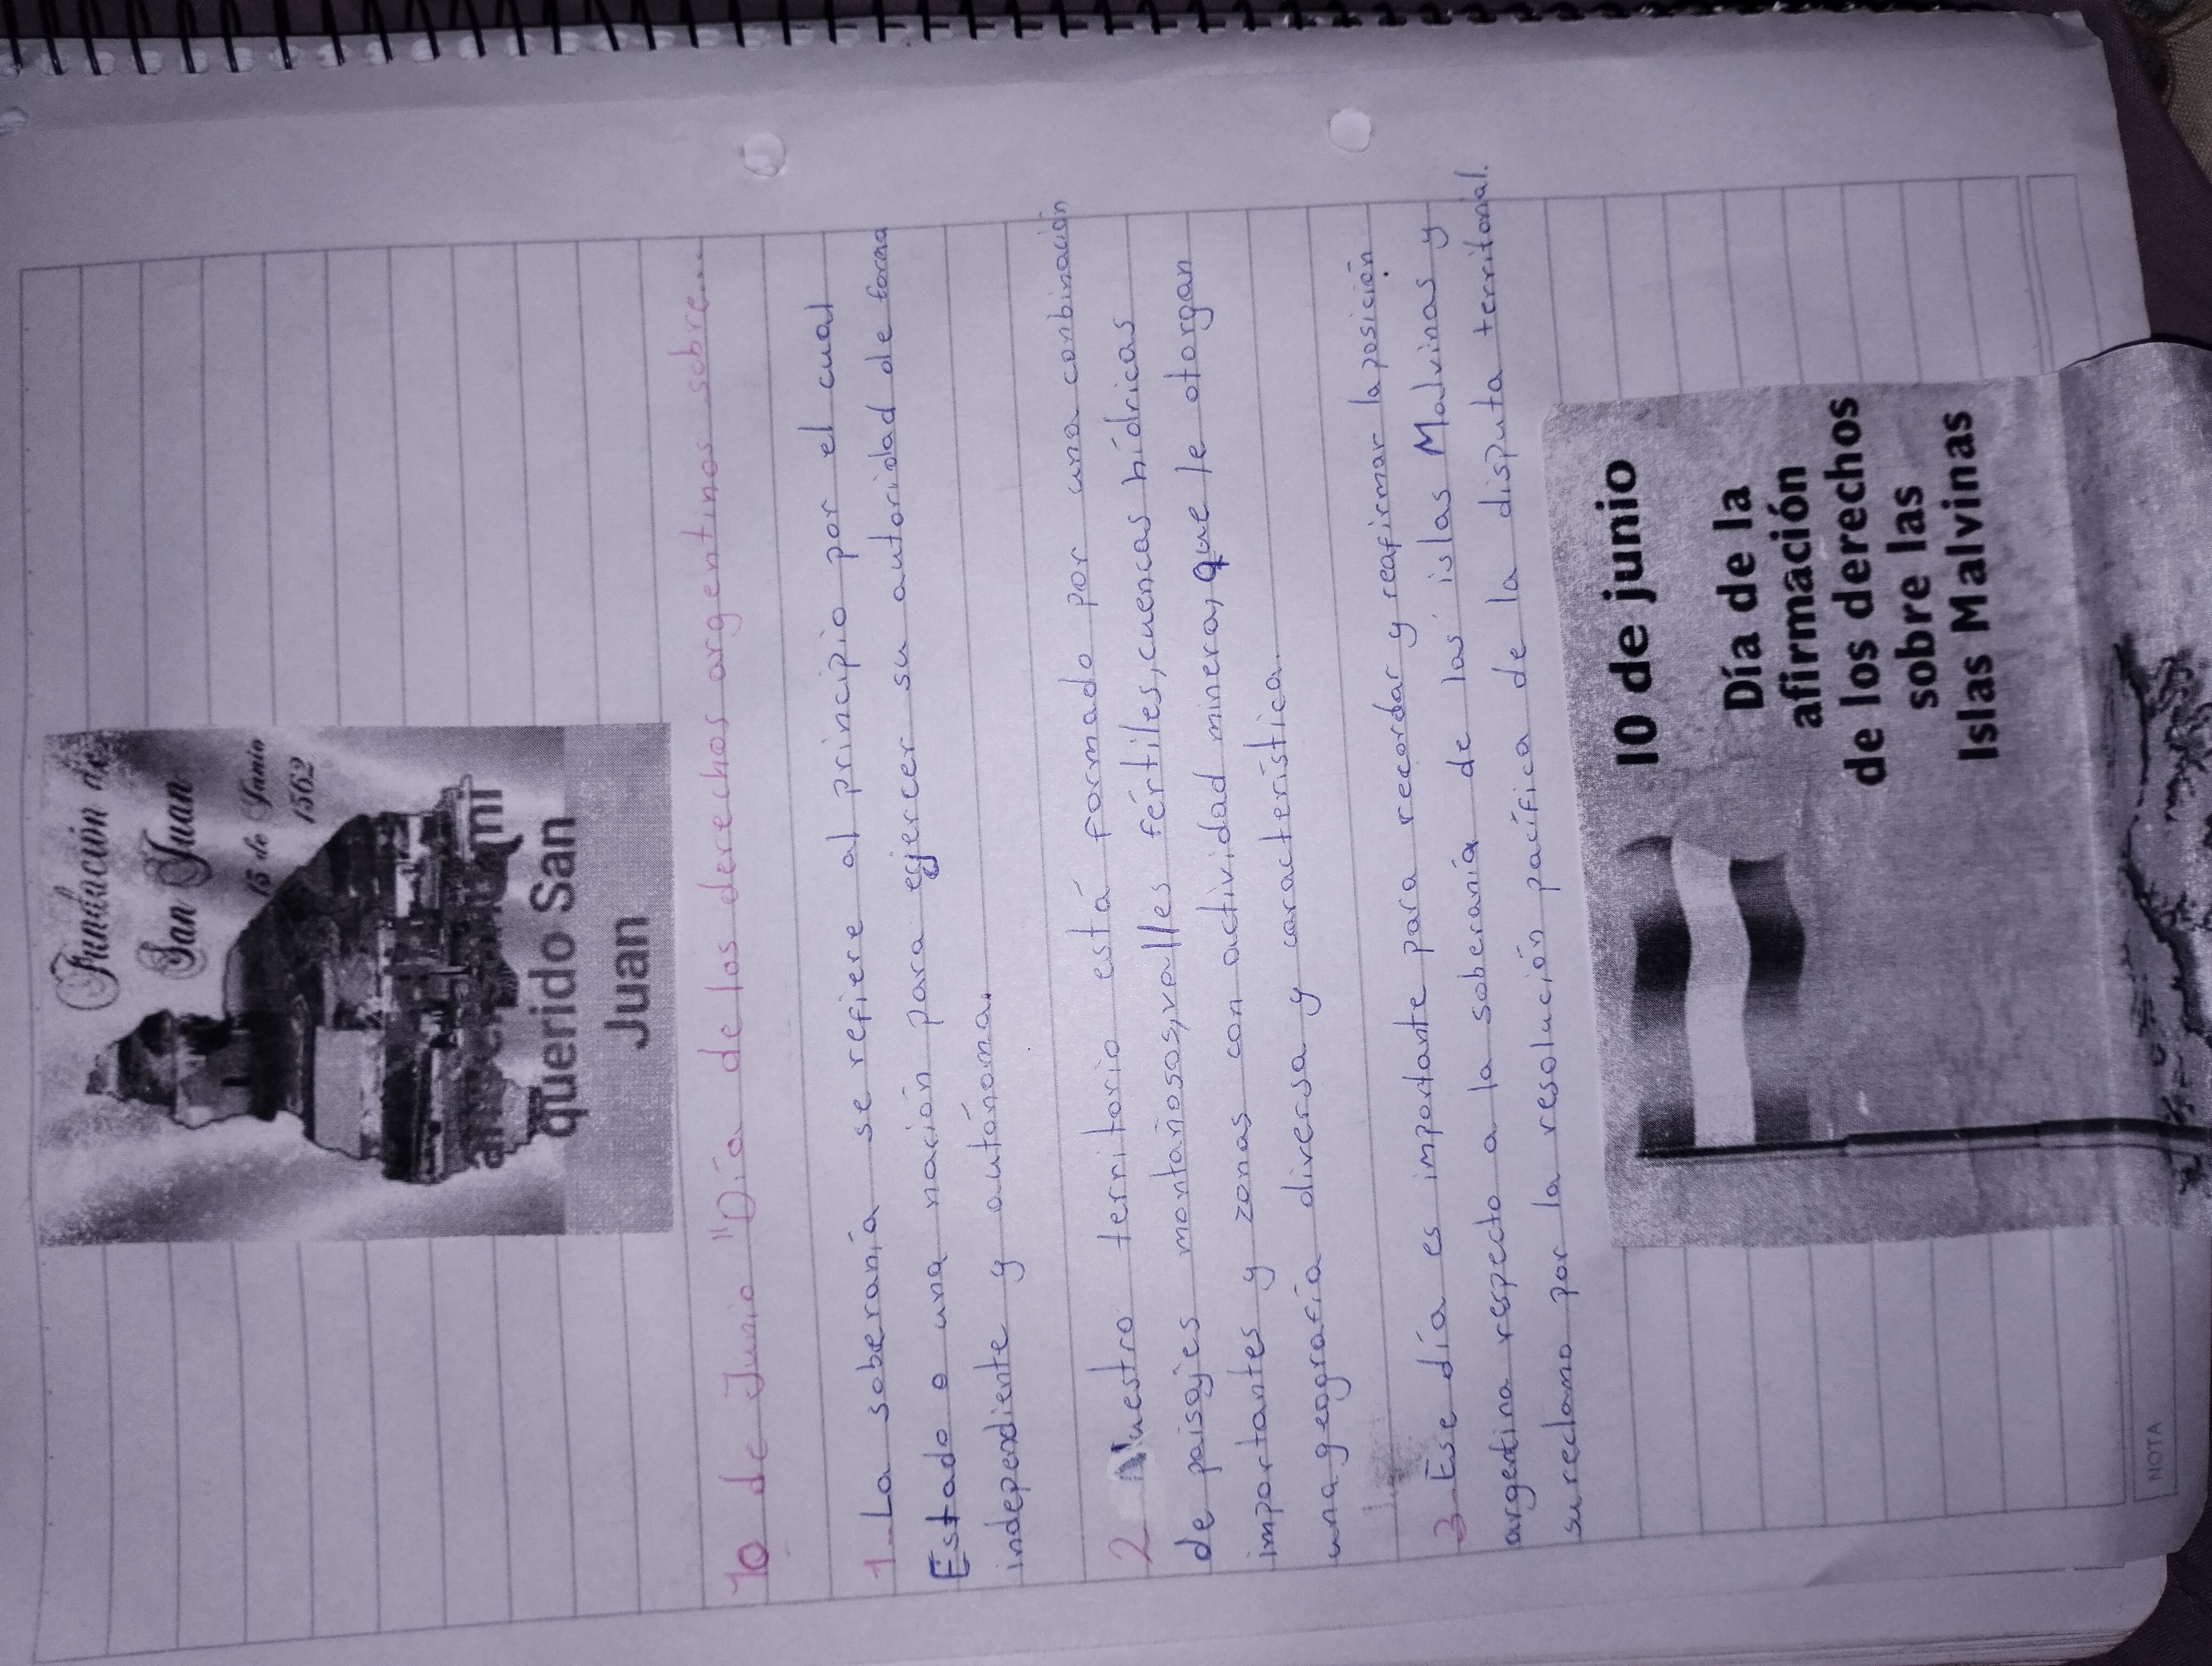 Fundación de
San Juan
15 de Junio
1562
querido San
Juan
10 de Junio "Día de los derechos argentinos sobre...
1_ La soberanía se refiere al principio por el cual
Estado o una nación para ejercer su autoridad de forma
independiente y autónoma.
2 Nuestro territorio está formado por una combinación
de paisajes montañosos, valles fértiles, cuencas hídricas
importantes y zonas con actividad minera, que le otorgan
una geografía diversa y característica.
3_ Ese día es importante para recordar y reafirmar la posición
argentina respecto a la soberanía de las islas Malvinas y
su reclamo por la resolución pacífica de la disputa territorial.
10 de junio
Día de la
afirmación
de los derechos
sobre las
Islas Malvinas
NOTA